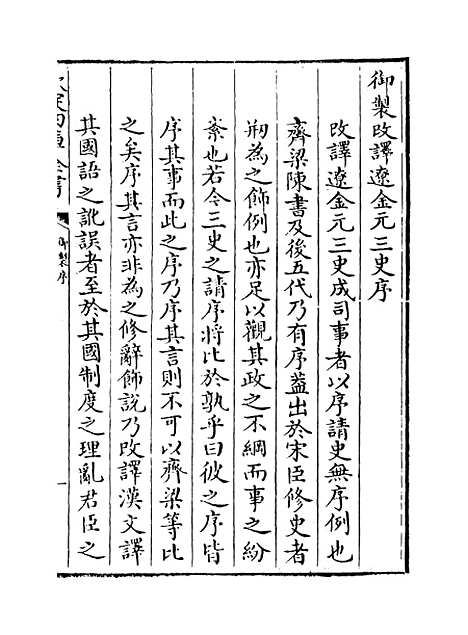 御製改譯遼金元三史序
改譯遼金元三史成司事者以序請史無序例也
齊梁陳書及後五代乃有序蓋出於宋臣修史者
剏為之飾例也亦足以觀其政之不綱而事之紛
紊也若今三史之請序將比於孰乎曰彼之序皆
序其事而此之序乃序其言則不可以齊梁等比
之矣序其言亦非為之修辭飾說乃改譯漢文譯
其國語之訛誤者至於其國制度之理亂君臣之
欽定四庫全書
御製序
一